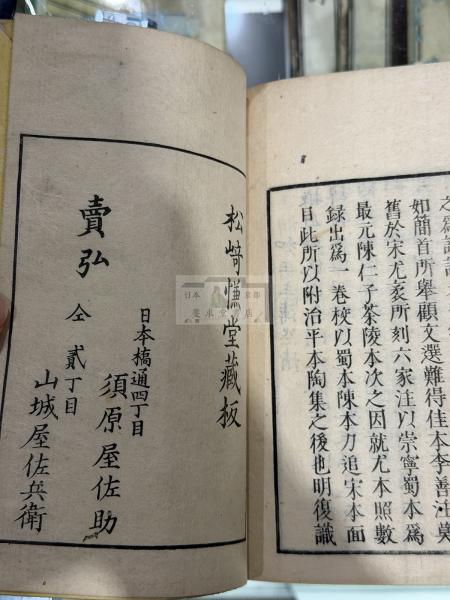 之爲
如簡首所舉顧文選難得佳本李善注莫
舊於宋尤袤所刻六家注以崇寧蜀本爲
最元陳仁子茶陵本次之因就尤本照數
録出爲一卷校以蜀本陳本刀追宋本面
目此所以附治平本陶集之後也明復識
松崎慊堂藏板
日本橋通四丁目
須原屋佐助
賣弘
仝貳丁目
山城屋佐兵衛
日本
京都